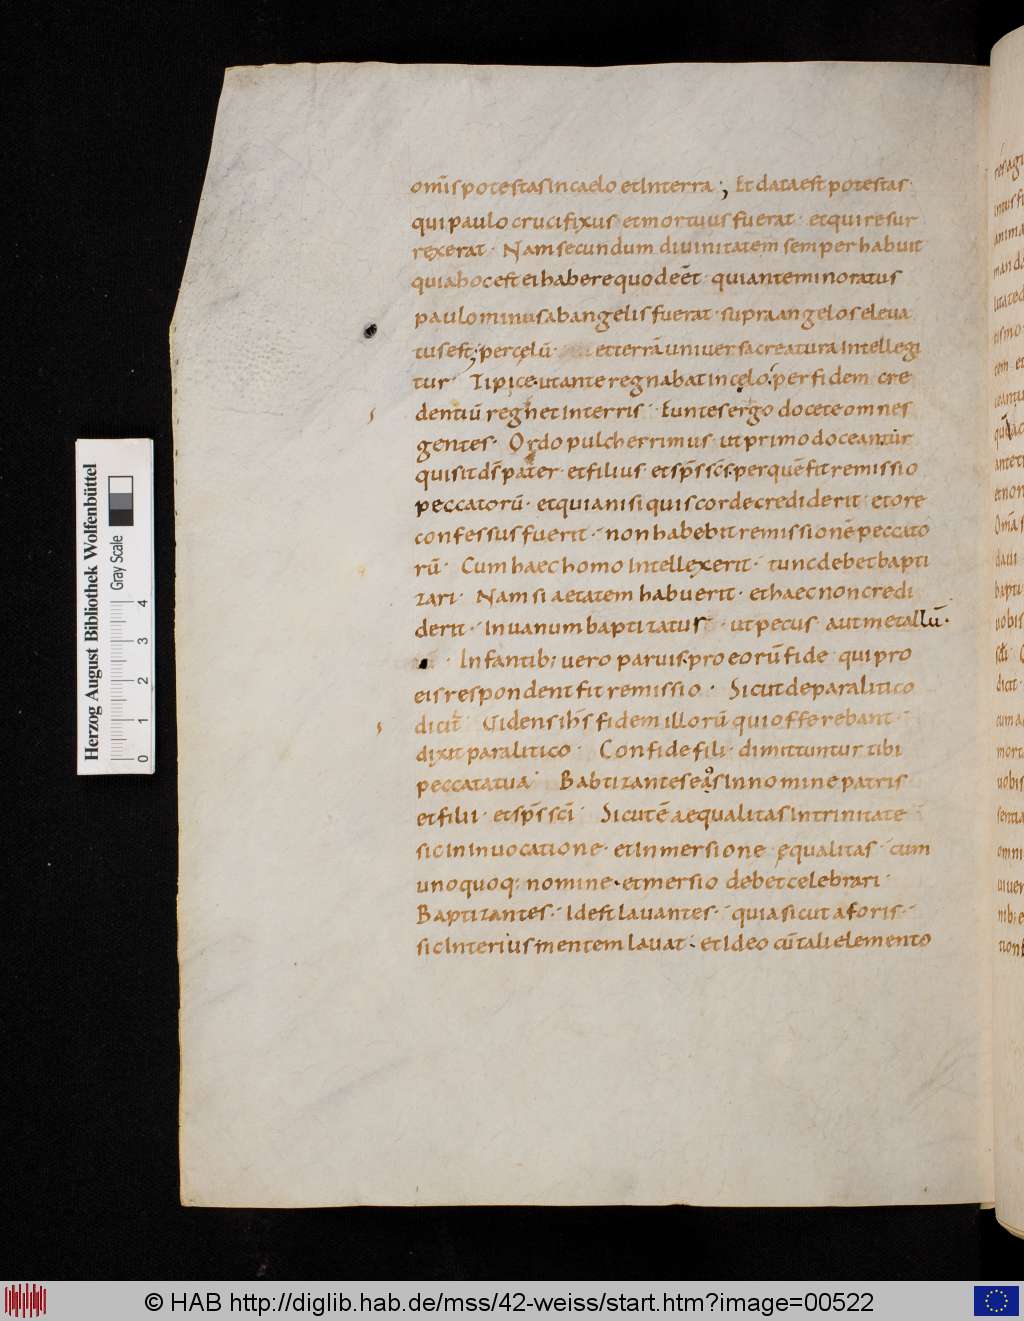 om̄is potestas in caelo et in terra ; Et data est potestas ·
qui paulo crucifixus et mortuus fuerat · et qui resur
rexerat · Nam secundum divinitatem semper habuit
quia hoc est ei habere quod eēt · qui ante minoratus
paulo minus ab angelis fuerat · supra angelos eleva
tus est ; per cęlū · et terrā universa creatura intellegi
tur · ut ante regnabat in cęlo · per fidem cre
dentiū regnet in terris · Euntes ergo docete omnes
gentes · Ordo pulcherrimus · ut primo doceantur
quis it ds̄ pater · et filius et sp̄s sc̄s · per quē fit remissio
peccatorū · et quia nisi quis corde crediderit · et ore
confessus fuerit · non habebit remissionē peccato
rū · Cum haec homo intellexerit · tunc debet bapti
zari · Nam si aetatem habuerit · et haec non credi
derit · in vanum baptizatus · ut pecus aut metallū ·
· Infantib; vero parvis · pro eorū fide · qui pro
eis respondent fit remissio · Sicut de paralitico
dicit Videns ih̄s fidem illorū qui offerebant ·
dixit paralitico · Confide fili · dimittuntur tibi
peccata tua · Babtizantes eos in nomine patris
et filii · et sp̄s sc̄i · Sicut ē aequalitas in trinitate
sic in invocatione · et in mersione ęqualitas · cum
uno quoq; nomine · et mersio debet celebrari ·
Baptizantes · Id est lavantes · quia sicut a foris ·
sic interius mentem lavat · et ideo cū tali elemento
Herzog August Bibliothek Wolfenbüttel
Gray Scale
0 1 2 3 4
© HAB http://diglib.hab.de/mss/42-weiss/start.htm?image=00522